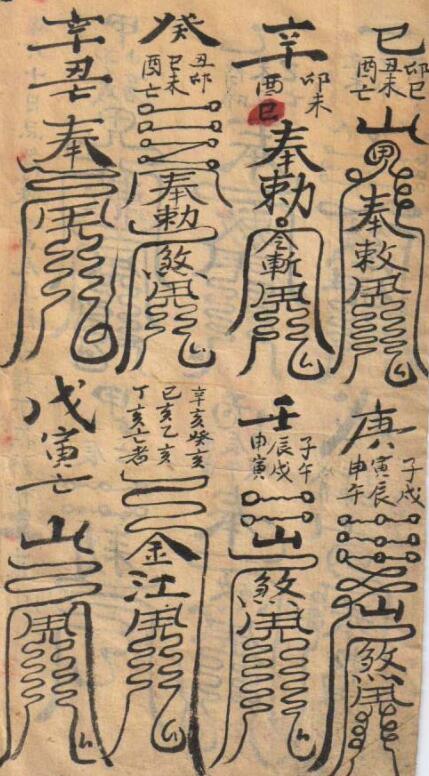 己
卯巳
丑未
酉亡
山
奉敕
辛
卯未
酉巳
奉勅
令斬
癸
丑卯
巳未
酉亡
奉勅
煞
辛丑亡
奉
庚
子戌
寅辰
申午
山
煞
壬
子午
辰戌
申寅
山
煞
辛亥癸亥
己亥乙亥
丁亥亡者
金江
戊寅亡
山